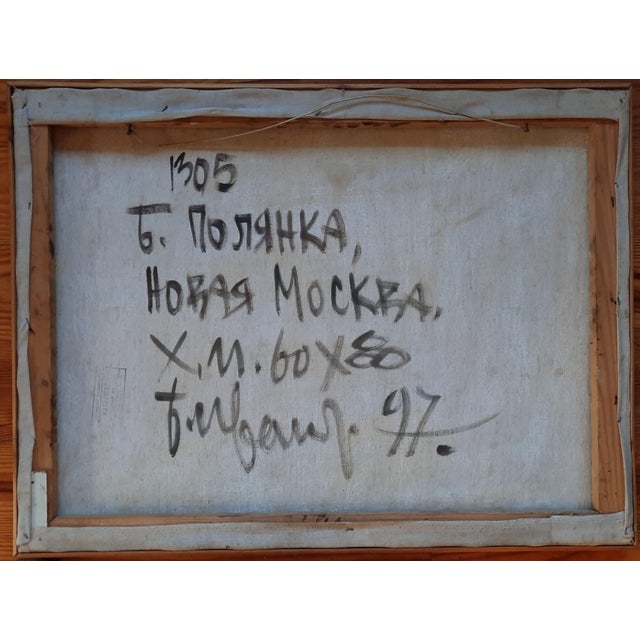 1305
Б. ПОЛЯНКА,
НОВАЯ МОСКВА.
Х.М. 60Х80
97.